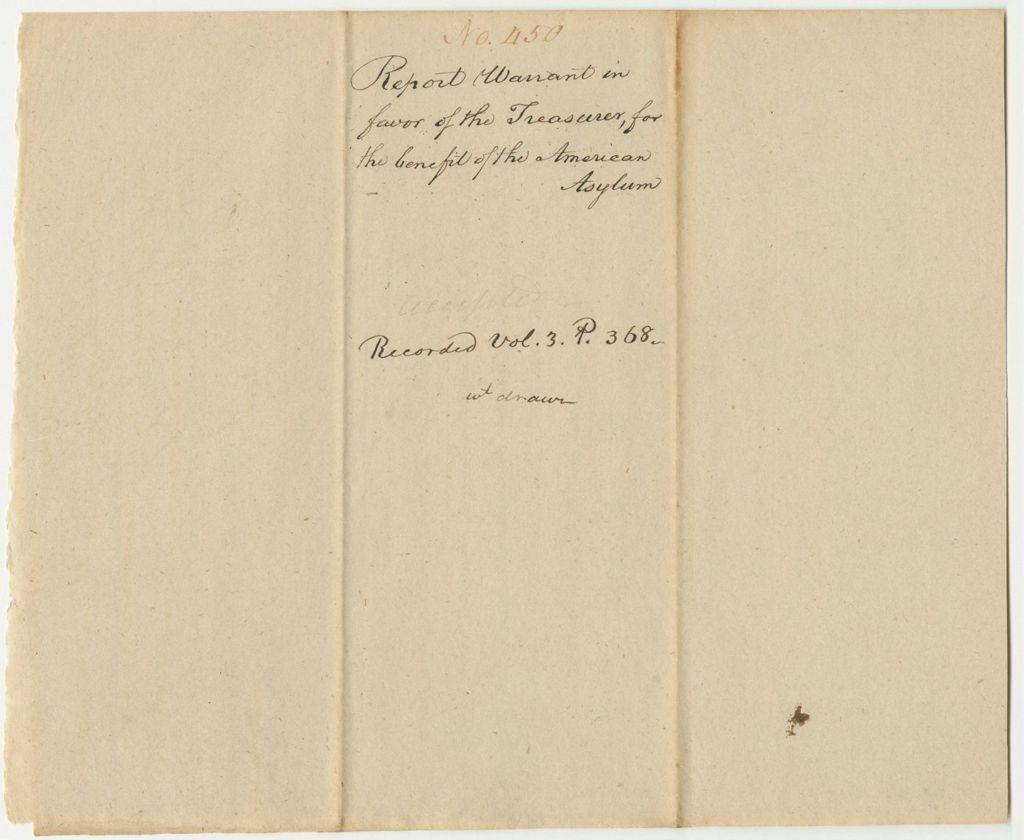 No. 450
Report Warrant in
favor of the Treasurer, for
the benefit of the American
Asylum
accepted
Recorded Vol. 3. P. 368.
wt drawn